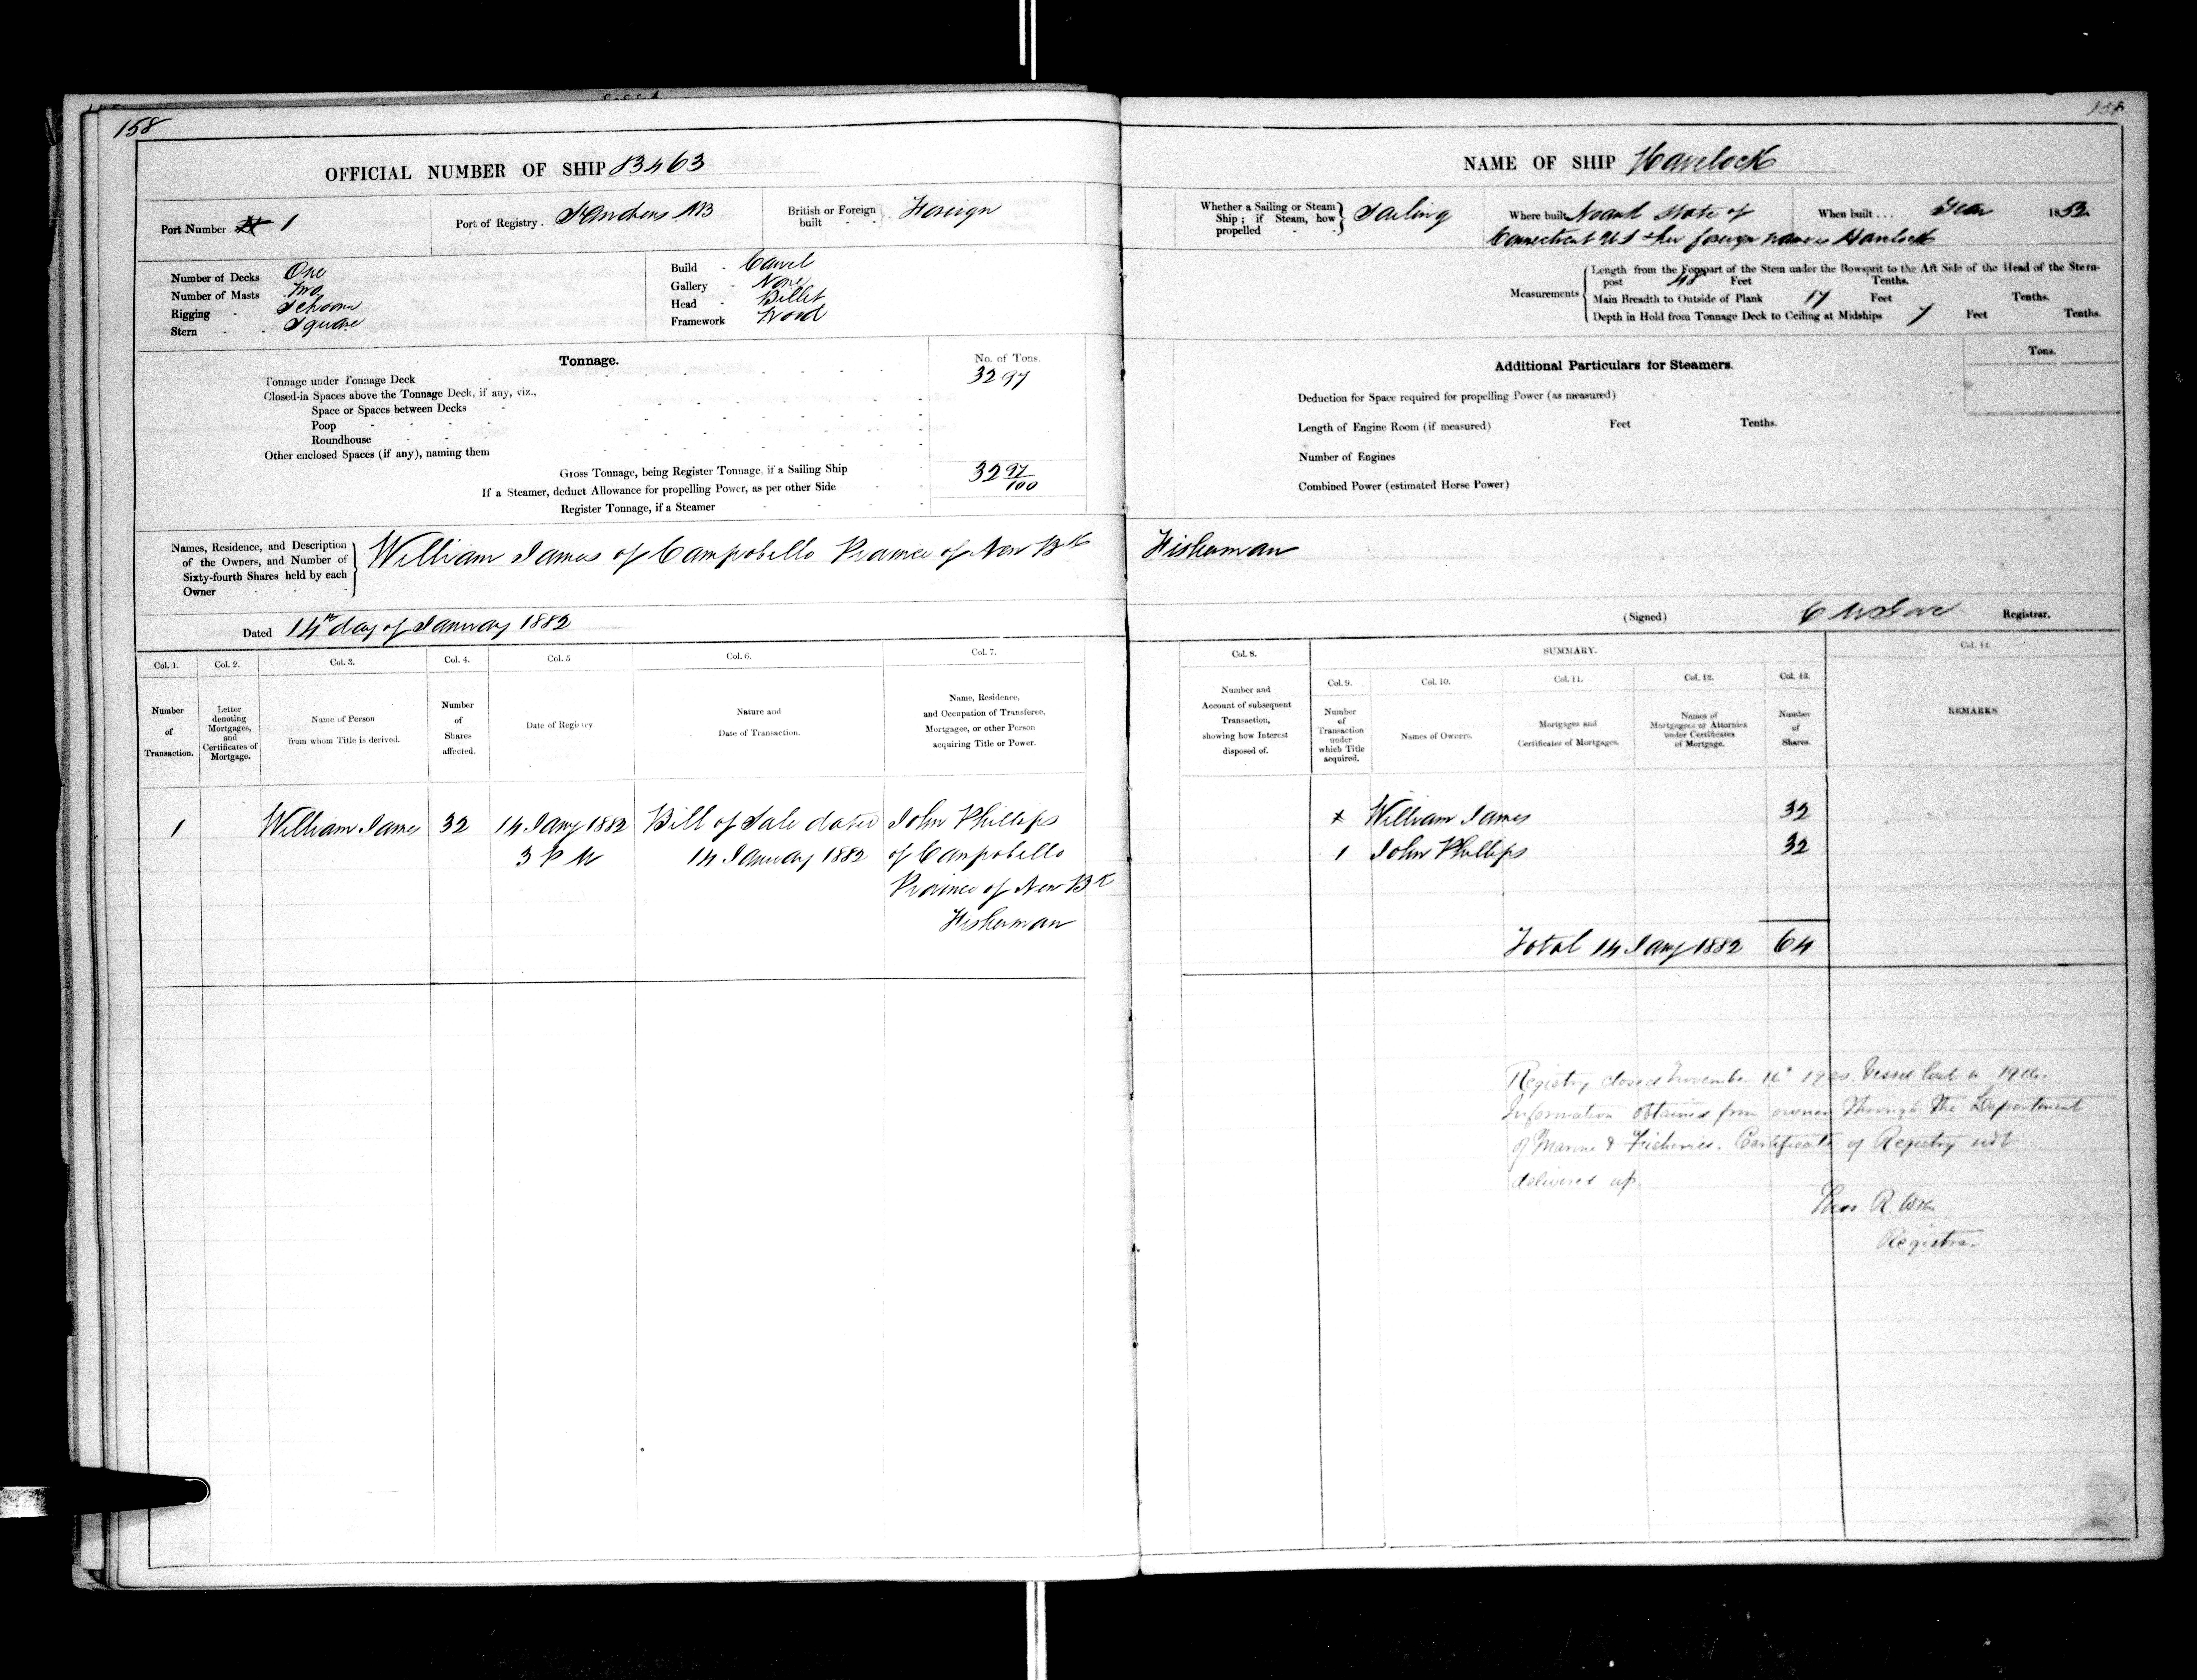 158
OFFICIAL NUMBER OF SHIP 83463
Port Number 1
Port of Registry. St Andrews NB
British or Foreign built Foreign
Number of Decks One
Number of Masts Two
Rigging Schooner
Stern Square
Build Carvel
Gallery None
Head Billet
Framework Wood
Tonnage.
No. of Tons.
Tonnage under Tonnage Deck 32 97
Closed-in Spaces above the Tonnage Deck, if any, viz.,
Space or Spaces between Decks
Poop
Roundhouse
Other enclosed Spaces (if any), naming them
Gross Tonnage, being Register Tonnage, if a Sailing Ship 32 97/100
If a Steamer, deduct Allowance for propelling Power, as per other Side
Register Tonnage, if a Steamer
Names, Residence, and Description of the Owners, and Number of Sixty-fourth Shares held by each Owner
William James of Campobello Province of New Bk
Dated 14th day of January 1882
Col. 1. Col. 2. Col. 3. Col. 4. Col. 5 Col. 6. Col. 7.
Number of Transaction.
Letter denoting Mortgages, and Certificates of Mortgage.
Name of Person from whom Title is derived.
Number of Shares affected.
Date of Registry
Nature and Date of Transaction.
Name, Residence, and Occupation of Transferee, Mortgagee, or other Person acquiring Title or Power.
1 William James 32 14 Jany 1882 Bill of Sale dated John Phillips
3 P M 14 January 1882 of Campobello
Province of New Bk
Fisherman
158
NAME OF SHIP Havelock
Whether a Sailing or Steam Ship; if Steam, how propelled Sailing
Where built State of
Connecticut US her foreign name Havelock
When built... Year 1852
Measurements
Length from the Forepart of the Stem under the Bowsprit to the Aft Side of the Head of the Stern-
post 48 Feet Tenths.
Main Breadth to Outside of Plank 17 Feet Tenths.
Depth in Hold from Tonnage Deck to Ceiling at Midships 7 Feet Tenths.
Additional Particulars for Steamers.
Tons.
Deduction for Space required for propelling Power (as measured)
Length of Engine Room (if measured) Feet Tenths.
Number of Engines
Combined Power (estimated Horse Power)
Fisherman
(Signed) Registrar.
Col. 8. SUMMARY. Col. 14.
Col. 9. Col. 10. Col. 11. Col. 12. Col. 13.
Number and Account of subsequent Transaction, showing how Interest disposed of.
Number of Transaction under which Title acquired.
Names of Owners.
Mortgages and Certificates of Mortgages.
Names of Mortgagees or Attornies under Certificates of Mortgage.
Number of Shares.
REMARKS.
William James 32
1 John Phillips 32
Total 14 Jany 1882 64
Registry closed November 16th 1920. Vessel lost in 1916.
Information obtained from owner through the Department
of Marine & Fisheries. Certificate of Registry not
delivered up.
Thos. R. Wren
Registrar